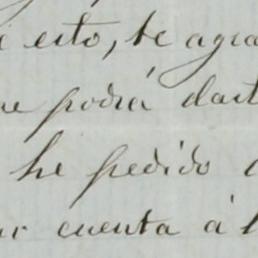 esto, te agra
podrá dart
he pedido
cuenta á l